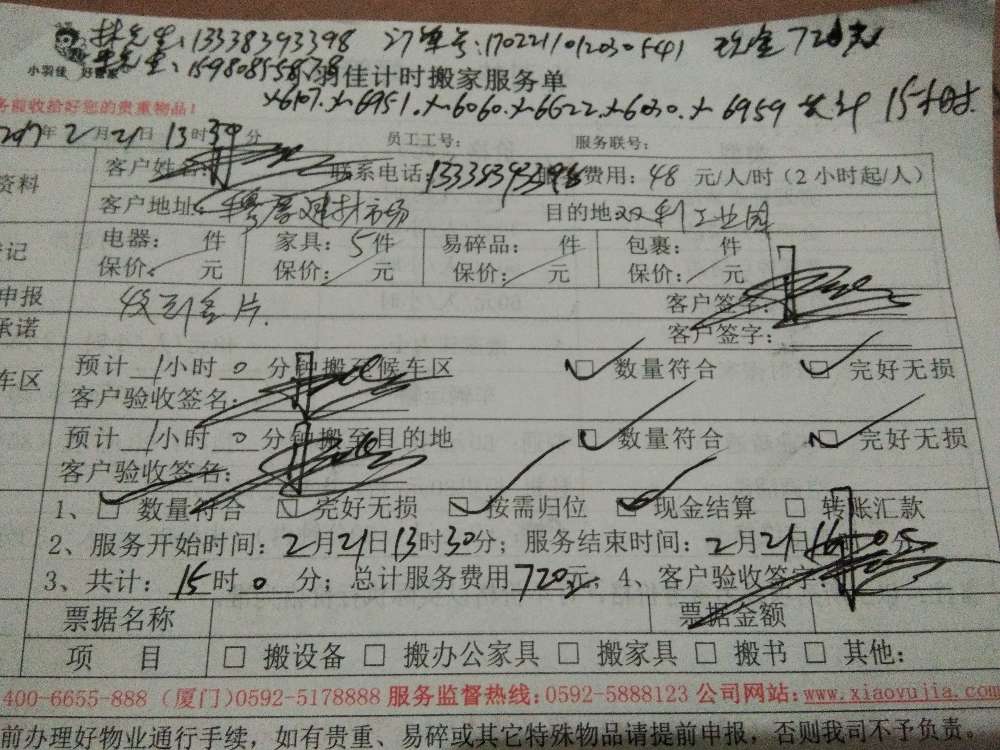 林先生:13338393398 订单号:170221012030541 现金720元
小羽佳 好管家 先生:15980855878 羽佳计时搬家服务单
务前收拾好您的贵重物品! 大6107.大6951.大6060.大6622.大6030.大6959 共计15小时.
2017年2月21日13时39分 员工工号: 服务联号:
资料 客户姓名: 联系电话:13338393398 服务费用:48元/人/时(2小时起/人)
客户地址: 建材市场 目的地 双利工业园
登记 电器: 件 家具:5件 易碎品: 件 包裹: 件
保价: 元 保价: 元 保价: 元 保价: 元
申报 客户签字:
承诺 客户签字:
车区 预计1小时0分钟搬至候车区 □ 数量符合 □ 完好无损
客户验收签名:
预计1小时0分钟搬至目的地 □ 数量符合 □ 完好无损
客户验收签名:
1、□ 数量符合 □ 完好无损 □ 按需归位 □ 现金结算 □ 转账汇款
2、服务开始时间:2月21日13时30分;服务结束时间:2月21日16时05分
3、共计:15时0分;总计服务费用720元;4、客户验收签字:
票据名称 票据金额
项 目 □ 搬设备 □ 搬办公家具 □ 搬家具 □ 搬书 □ 其他:
400-6655-888 (厦门)0592-5178888 服务监督热线:0592-5888123 公司网站:www.xiaoyujia.com
前办理好物业通行手续,如有贵重、易碎或其它特殊物品请提前申报,否则我司不予负责。